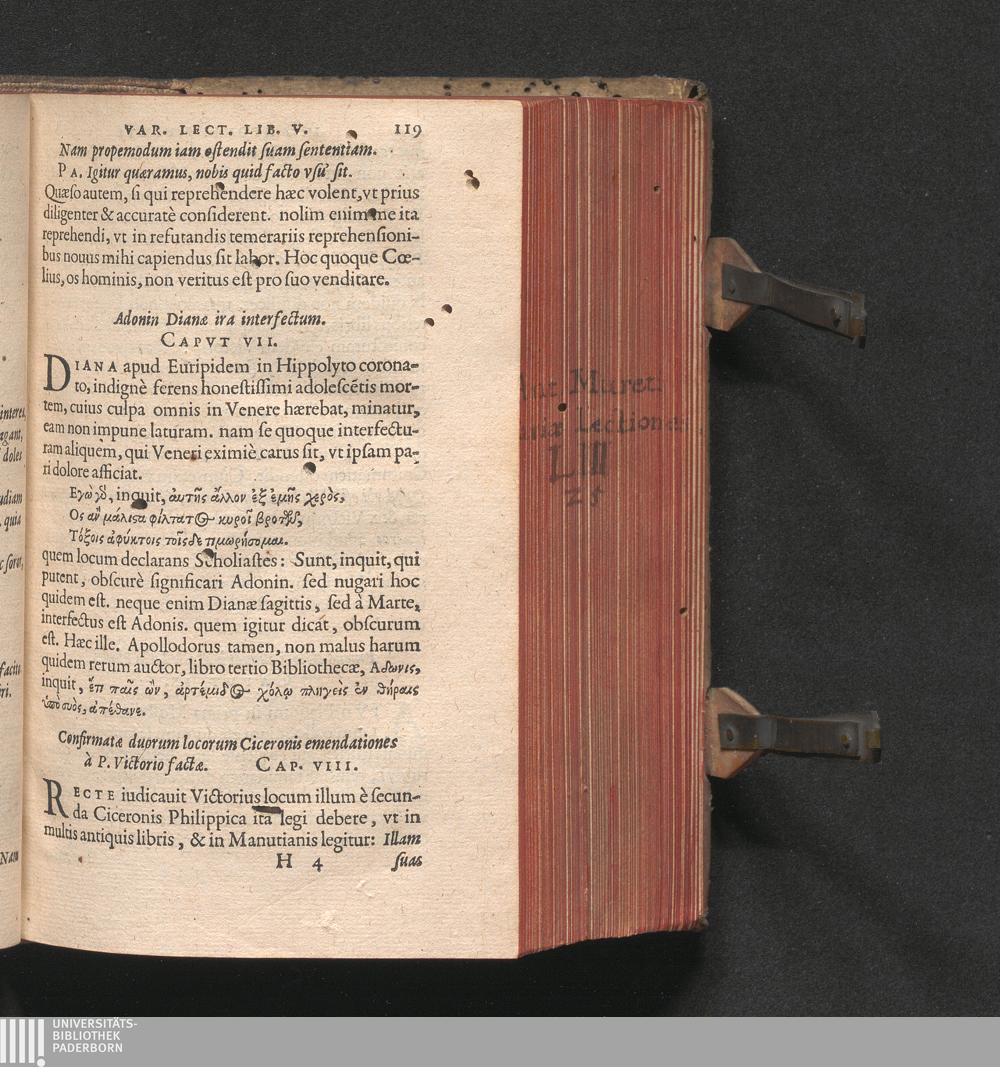 VAR. LECT. LIB. V. 119
Nam propemodum iam ostendit suam sententiam.
PA. Igitur quæramus, nobis quid facto vsu' sit.
Quæso autem, si qui reprehendere hæc volent, vt prius
diligenter & accuratè considerent. nolim enim me ita
reprehendi, vt in refutandis temerariis reprehensioni-
bus nouus mihi capiendus sit labor. Hoc quoque Cœ-
lius, os hominis, non veritus est pro suo venditare.
Adonin Dianæ ira interfectum.
CAPVT VII.
DIANA apud Euripidem in Hippolyto corona-
to, indignè ferens honestissimi adolescētis mor-
tem, cuius culpa omnis in Venere hærebat, minatur,
eam non impune laturam. nam se quoque interfectu-
ram aliquem, qui Veneri eximiè carus sit, vt ipsam pa-
ri dolore afficiat.
Εγὼ γὸ, inquit, αὐτῆς ἄλλον ἐξ ἐμῆς χερὸς,
Ος ἂν μάλιϛα φίλτατος κυροῖ βροτῶν,
Τόξοις ἀφύκτοις τοῖσδε τιμωρήσομαι.
quem locum declarans Scholiastes: Sunt, inquit, qui
putent, obscurè significari Adonin. sed nugari hoc
quidem est. neque enim Dianæ sagittis, sed à Marte,
interfectus est Adonis. quem igitur dicat, obscurum
est. Hæc ille. Apollodorus tamen, non malus harum
quidem rerum auctor, libro tertio Bibliothecæ, Αδωνις,
inquit, ἔτι παῖς ὢν, ἀρτέμιδος χόλῳ πληγεὶς ἐν θήραις
ὑπὸ συὸς, ἀπέθανε.
Confirmatæ duorum locorum Ciceronis emendationes
à P. Victorio factæ. CAP. VIII.
RECTE iudicauit Victorius locum illum è secun-
da Ciceronis Philippica ita legi debere, vt in
multis antiquis libris, & in Manutianis legitur: Illam
H 4 suas
interes,
agant,
doles
udiam
, quia
c soror,
facilè
Nam
Ant Muret.
Lectiones
LIII
25
UNIVERSITÄTS-
BIBLIOTHEK
PADERBORN